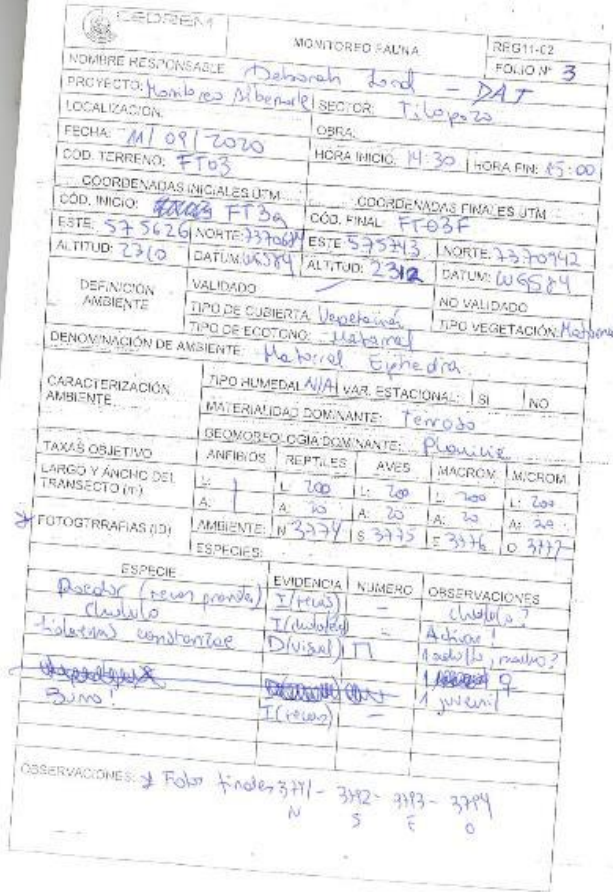 CEDREM
MONITOREO FAUNA
RRG11-02
FOLIO N° 3
NOMBRE RESPONSABLE Deborah - DAT
PROYECTO: Monitoreo Albemarle SECTOR: Tilopozo
LOCALIZACIÓN: OBRA:
FECHA: 11/09/2020 HORA INICIO: 14:30 HORA FIN: 15:00
COD. TERRENO: FT03
COORDENADAS INICIALES UTM COORDENADAS FINALES UTM
CÓD. INICIO: FT3a CÓD. FINAL: FT03F
ESTE: 575626 NORTE: ESTE: 575743 NORTE: 7370942
ALTITUD: 2310 DATUM: WGS84 ALTITUD: 2312 DATUM: WGS84
DEFINICIÓN AMBIENTE VALIDADO NO VALIDADO
TIPO DE CUBIERTA: Vegetación TIPO VEGETACIÓN: Matorral
TIPO DE ECOTONO: Matorral
DENOMINACIÓN DE AMBIENTE: Matorral Ephedra
CARACTERIZACIÓN AMBIENTE TIPO HUMEDAL N/A VAR. ESTACIONAL: SI NO
MATERIALIDAD DOMINANTE: Terroso
GEOMORFOLOGÍA DOMINANTE: Planicie
TAXAS OBJETIVO ANFIBIOS REPTILES AVES MACROM. MICROM.
LARGO Y ANCHO DEL TRANSECTO (m) L: L: 200 L: 200 L: 200 L: 200
A: A: 20 A: 20 A: 20 A: 20
* FOTOGTRRAFIAS (ID) AMBIENTE: N 3774 S 3775 E 3776 O 3777
ESPECIES:
ESPECIE EVIDENCIA NUMERO OBSERVACIONES
Roedor (fecas) I (fecas) - chululo?
chululo - Activas!
Liolaemus constanzae D (visual) 1 adulto, macho?
1 ♀
1 juvenil
I (fecas) -
OBSERVACIONES: * Fotos finales 3791 - 3792 - 3793 - 3794
N S E O